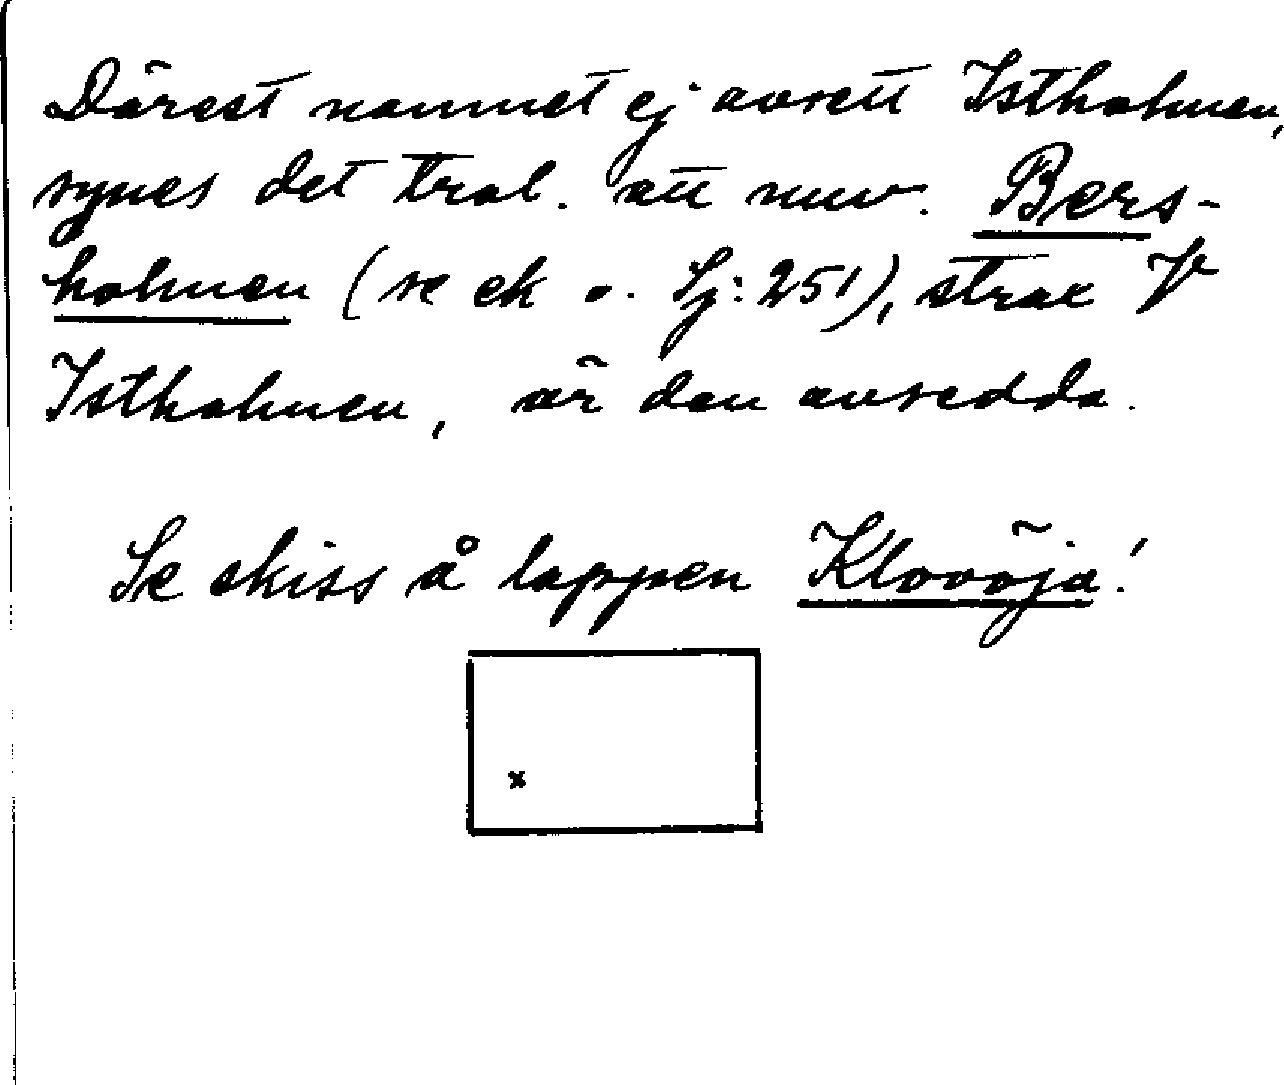 Därest namnet ej avsett Istholmen,
synes det trol. att nuv. Bers-
holmen (se ek o. Sj: 251), strax V
Istholmen, är den avsedda.
Se skiss å lappen Klovöja!
x